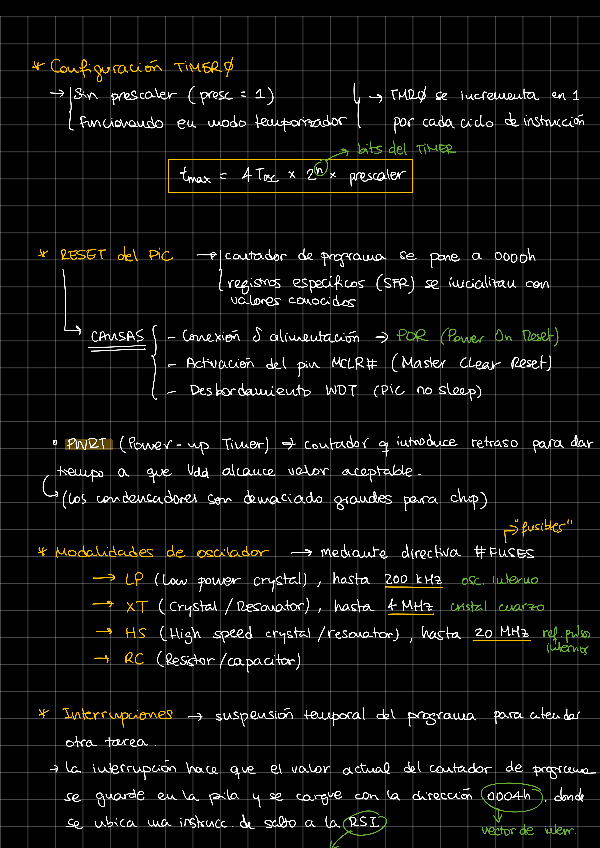 * Configuración TIMER0
→ Sin prescaler (presc = 1) → TMR0 se incrementa en 1
funcionando en modo temporizador por cada ciclo de instrucción
→ bits del TIMER
tmax = 4 Tosc × 2^n × prescaler
* RESET del PIC → contador de programa se pone a 0000h
registros específicos (SFR) se inicializan con
valores conocidos
CAUSAS - Conexión δ alimentación → POR (Power On Reset)
- Activación del pin MCLR# (Master Clear Reset)
- Desbordamiento WDT (PIC no sleep)
• PWRT (Power-up Timer) → contador q introduce retraso para dar
tiempo a que Vdd alcance valor aceptable.
(los condensadores son demaciado grandes para chip)
→ "fusibles"
* Modalidades de oscilador → mediante directiva #FUSES
→ LP (Low power crystal), hasta 200 kHz osc. interno
→ XT (Crystal/Resonator), hasta 4 MHz cristal cuarzo
→ HS (High speed crystal/resonator), hasta 20 MHz ref. pulsos
internos
→ RC (Resistor/capacitor)
* Interrupciones → suspensión temporal del programa para atender
otra tarea.
→ La interrupción hace que el valor actual del contador de programa
se guarde en la pila y se cargue con la dirección 0004h, donde
se ubica una instrucc. de salto a la RSI
vector de interr.